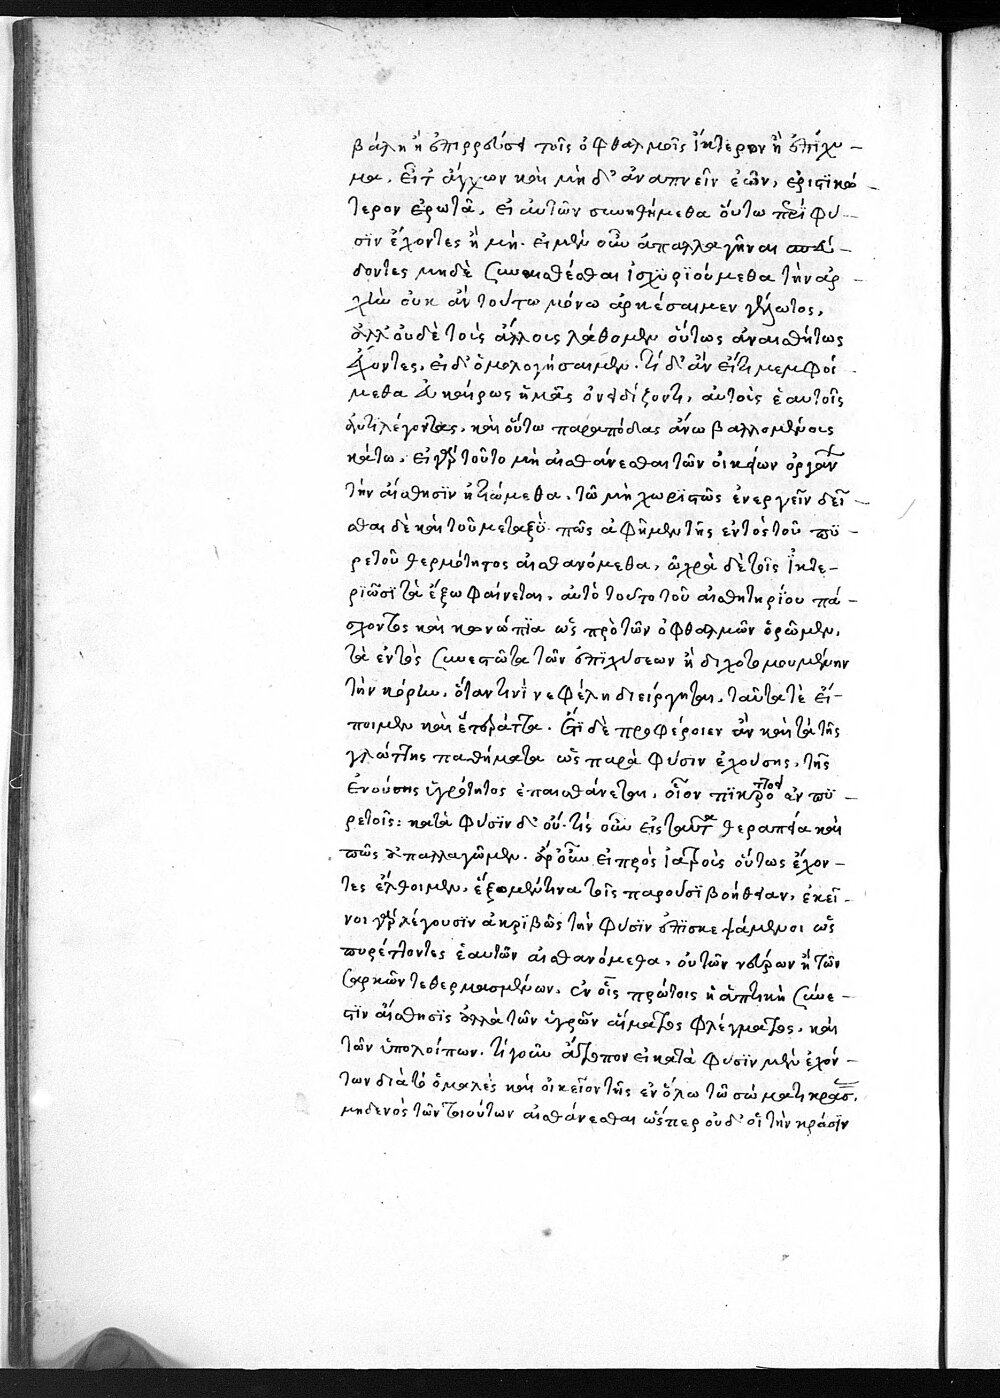 βάλη ἢ ἐπιρρεύσει τοῖς ὀφθαλμοῖς ἴκτερον ἢ ἐπίχυ-
μα. εἶτ' ἄγχων καὶ μὴ δ' ἀναπνεῖν ἐῶν, ἐριστικώ-
τερον ἐρωτᾶ, εἰ αὐτῶν συνηθήμεθα οὕτω περὶ φύ-
σϊν ἔχοντες ἢ μή. εἰ μὲν οὖν ἀπαλλαγῆναι
δοντες μηδὲ συναισθέσθαι ἰσχυριούμεθα τὴν ἀρ-
χὴν οὐκ ἂν τούτω μόνω ἀρκέσαιμεν γέλωτος,
ἀλλ' οὐδὲ τοῖς ἄλλοις λάθοιμεν οὕτως ἀναισθήτως
ἔχοντες, εἰ δ' ὁμολογήσαιμεν. τί δ' ἂν εἴ τι μεμφοί-
μεθα εὐκαίρως ἡμᾶς ὀνειδίζοντι, αὐτοὶς ἑαυτοῖς
ἀντιλέγοντας, καὶ οὕτω παραπόδας ἄνω βαλλομένοις
κάτω. εἰ γὰρ τοῦτο μὴ αἰσθάνεσθαι τῶν οἰκείων ὀργάνων
τὴν αἴσθησϊν ἠτιώμεθα, τῶ μὴ χωρϊστῶς ἐνεργεῖν δεῖ-
σθαι δὲ καὶ τοῦ μεταξὺ πῶς ἁφῆ μὲν τῆς ἐντὸς τοῦ πϋ-
ρετοῦ θερμότητος αἰσθανόμεθα, ὠχρὰ δὲ τοῖς ἴκτε-
ρϊῶσϊ τὰ ἔξω φαίνεται, αὐτὸ τοῦτο τοῦ αἰσθητηρίου πά-
σχοντος καὶ κωνώπϊα ὡς πρὸ τῶν ὀφθαλμῶν ὁρῶμεν,
τὰ ἐντὸς συνεστῶτα τῶν ἐπϊχύσεων ἢ διχοτομουμένην
τὴν κόρην, ὅταν τινὶ νεφέλη διείργηται, ταῦτα τὲ εἴ-
ποιμεν καὶ ἕτερἄττα. ἔτϊ δὲ προφέροιεν ἂν καὶ τὰ τῆς
γλώττης παθήματα ὡς παρὰ φύσιν ἐχούσης, τῆς
ἐνούσης ὑγρότητος ἐπαισθάνεται, οἷον πϊκροῦ ἐν πϋ-
ρετοῖς: κατὰ φύσϊν δ' οὔ. τίς οὖν εἰς ταῦτα θεραπεία καὶ
πῶς ἀπαλλαγῶμεν. ἆρ' οὖν εἰ πρὸς ἰατροὺς οὕτως ἔχον-
τες ἔλθοιμεν, ἕξομέν τινα τοῖς παροῦσϊ βοήθειαν, ἐκεῖ-
νοι γὰρ λέγουσϊν ἀκριβῶς τὴν φύσϊν ἐπϊσκεψάμενοι ὡς
πυρέττοντες ἑαυτῶν αἰσθανόμεθα, οὐ τῶν νεύρων ἢ τῶν
σαρκῶν τεθερμασμένων, ἐν οἷς πρώτοις ἡ ἁπτικὴ συνέ-
στϊν αἴσθησϊς ἀλλὰ τῶν ὑγρῶν αἵματος φλέγματος, καὶ
τῶν ὑπολοίπων. τί γοῦν ἄτοπον εἰ κατὰ φύσϊν μὲν ἐχόν-
των διὰ τὸ ὁμαλὲς καὶ οἰκεῖον τῆς ἐν ὅλω τῶ σώματι κράσεως,
μηδενὸς τῶν τοιούτων αἰσθάνεσθαι ὥσπερ οὐδ' οἱ τὴν κράσϊν